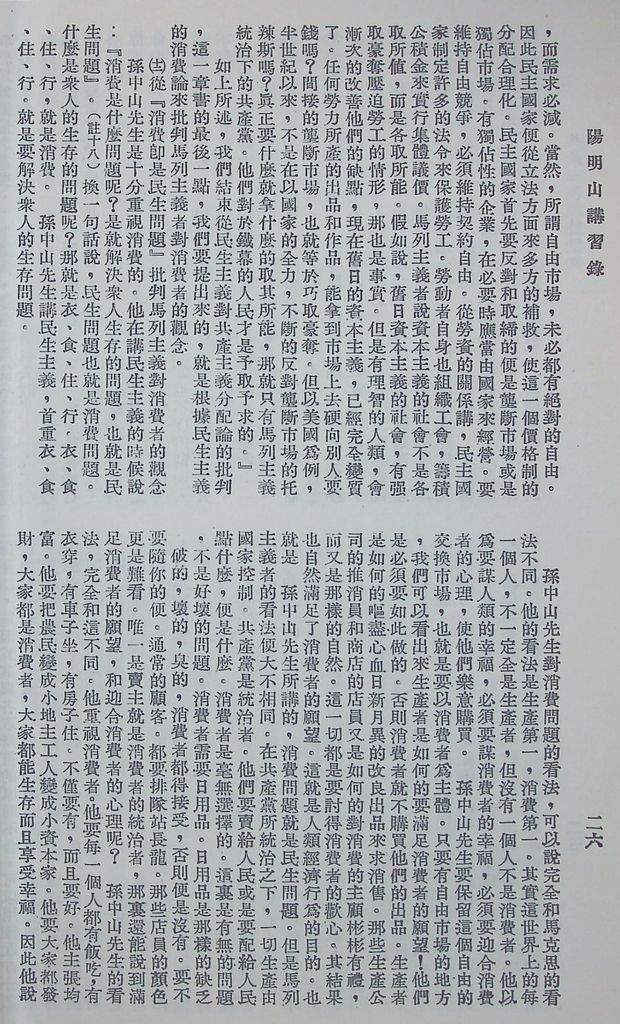 陽明山講習錄
二六
，而需求必減。當然，所謂自由市場，未必都有絕對的自由。
因此民主國家便從立法方面來多方的補救，使這一個價格制的
分配合理化。民主國家首先要反對和取締的便是壟斷市場或是
獨佔市場。有獨佔性的企業，在必要時應當由國家來經營。要
維持自由競爭，必須維持契約自由。從勞資的關係講，民主國
家制定許多的法令來保護勞工。勞動者自身也組織工會，籌積
公積金來實行集體議價。馬列主義者說資本主義的社會不是各
取所值，而是各取所能。假如說，舊日資本主義的社會，有强
取豪奪壓迫勞工的情形，那也是事實。但是有理智的人類，會
漸次的改善他們的缺點，現在舊日的資本主義，已經完全變質
了。任何勞力所產的出品和作品，能拿到市場上去硬向別人要
錢嗎？間接的壟斷市場，也就等於巧取豪奪。但以美國爲例，
半世紀以來，不是在以國家的全力，不斷的反對壟斷市場的托
辣斯嗎？眞正要什麼就拿什麼的取其所能，那就只有馬列主義
統治下的共產黨。他們對於鐵幕的人民才是予取予求的。』
如上所述，我們結束從民生主義對共產主義分配論的批判
，這一章書的最後一點，我們要提出來的，就是根據民生主義
的消費論來批判馬列主義者對消費者的觀念。
㈩從『消費卽是民生問題』批判馬列主義對消費者的觀念
孫中山先生是十分重視消費的。他在講民生主義的時候說
：『消費是什麼問題呢？是就解決衆人生存的問題，也就是民
生問題』。（註十八）換一句話說，民生問題也就是消費問題。
什麼是衆人的生存的問題呢？那就是衣、食、住、行。衣、食
、住、行，就是消費。 孫中山先生講民生主義，首重衣、食
、住、行。就是要解決衆人的生存問題。
孫中山先生對消費問題的看法，可以說完全和馬克思的看
法不同。他的看法是生產第一，消費第一。其實這世界上的每
一個人，不一定全是生產者，但沒有一個人不是消費者。他以
爲要謀人類的幸福，必須要謀消費者的幸福，必須要迎合消費
者的心理，使他們樂意購買。 孫中山先生要保留這個自由的
交換市場，也就是要以消費者爲主體。只要有自由市場的地方
，我們可以看出來生產者是如何的要滿足消費者的願望！他們
是必須要如此做的。否則消費者就不購買他們的出品。生產者
是如何的嘔盡心血日新月異的改良出品來求消售。那些生產公
司的推消員和商店的店員又是如何的對消費的主顧彬彬有禮，
而又是那樣的自然。這一切都是要討得消費者的歡心。其結果
也自然滿足了消費者的願望。這就是人類經濟行爲的目的。也
就是 孫中山先生所講的，消費問題就是民生問題。但是馬列
主義者的看法便大不相同。在共產黨所統治之下，一切生產由
國家控制。共產黨是統治者。他們要賣給人民或是要配給人民
點什麼，便是什麼。消費者是毫無選擇的。這裏是有無的問題
，不是好壞的問題。消費者需要日用品。日用品是那樣的缺乏
破的，壞的，臭的，消費者都得接受，否則便是沒有。要不
要隨你的便。通常的顧客。都要排隊站長龍。那些店員的顏色
更是難看。唯一是賣主就是消費者的統治者，那裏還能說到滿
足消費者的願望，和迎合消費者的心理呢？ 孫中山先生的看
法，完全和這不同。他重視消費者。他要每一個人都有飯吃，有
衣穿，有車子坐，有房子住。不僅要有，而且要好。他主張均
富。他要把農民變成小地主工人變成小資本家。他要大家都發
財，大家都是消費者，大家都能生存而且享受幸福。因此他說